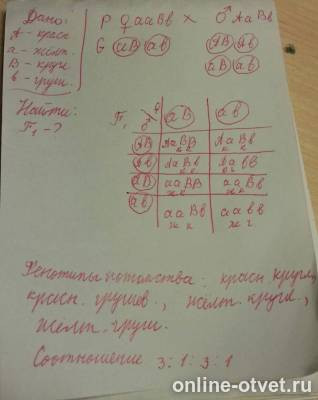 Дано:
А - красн
а - жёлт.
В - кругл
в - груш.
Найти:
F₁ - ?
P ♀ ааВв × ♂ АаВв
G аВ ав АВ Ав
аВ ав
F₁ ♂ ♀ аВ ав
АВ АаВВ к к АаВв к к
Ав АаВв к к Аавв к г
аВ ааВВ ж к ааВв ж к
ав ааВв ж к аавв ж г
Фенотипы потомства: красн кругл,
красн. грушев., желт. кругл.,
желт. груш.
Соотношение 3:1:3:1
online-otvet.ru